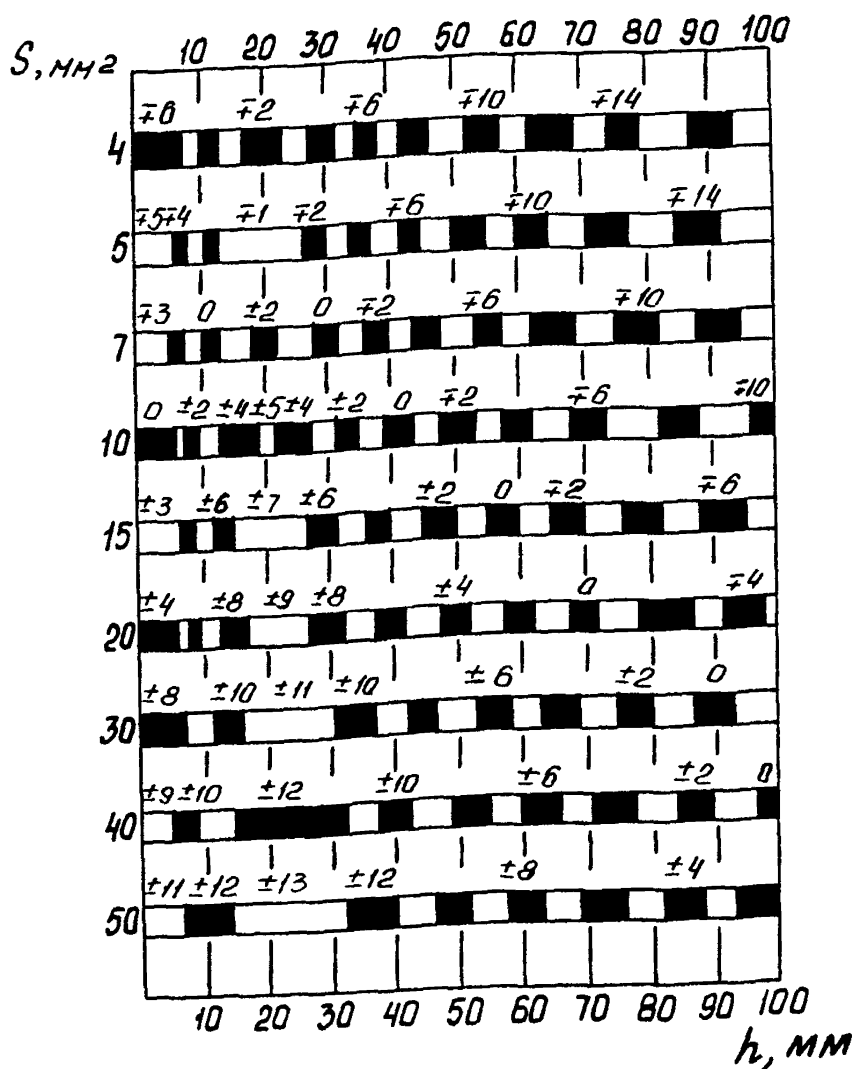 S, мм2 10 20 30 40 50 60 70 80 90 100
∓6 ∓2 ∓6 ∓10 ∓14
4
∓5 ∓4 ∓1 ∓2 ∓6 ∓10 ∓14
5
∓3 0 ±2 0 ∓2 ∓6 ∓10
7
0 ±2 ±4 ±5 ±4 ±2 0 ∓2 ∓6 ∓10
10
±3 ±6 ±7 ±6 ±2 0 ∓2 ∓6
15
±4 ±8 ±9 ±8 ±4 0 ∓4
20
±8 ±10 ±11 ±10 ±6 ±2 0
30
±9 ±10 ±12 ±10 ±6 ±2 0
40
±11 ±12 ±13 ±12 ±8 ±4
50
10 20 30 40 50 60 70 80 90 100
h, мм